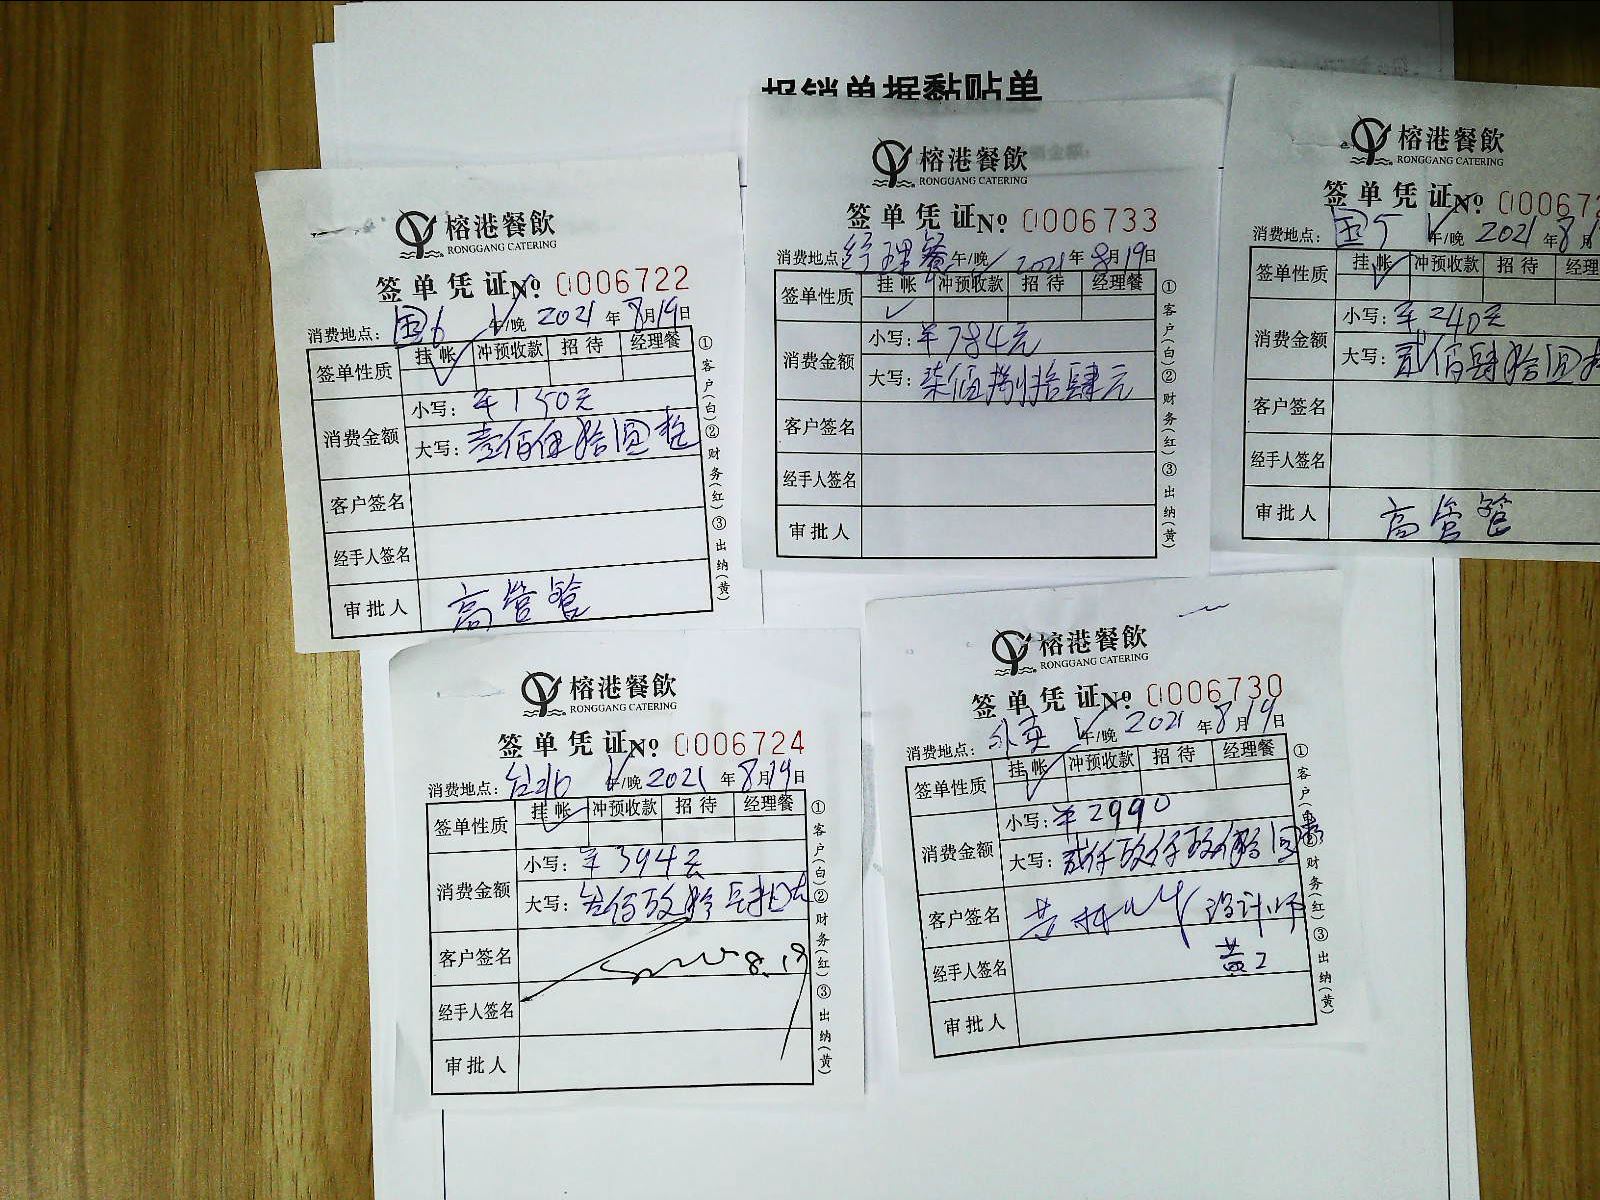 报销单据黏贴单
榕港餐飲
RONGGANG CATERING
签单凭证 No 0006722
消费地点: 国6 午/晚 2021年8月19日
签单性质 挂帐 冲预收款 招待 经理餐
消费金额
小写: ¥150元
大写: 壹佰伍拾圆整
客户签名
经手人签名
审批人 高管签
①客户(白)②财务(红)③出纳(黄)
榕港餐飲
RONGGANG CATERING
签单凭证 No 0006733
消费地点 经理餐 午/晚 2021年8月19日
签单性质 挂帐 冲预收款 招待 经理餐
消费金额
小写: ¥784元
大写: 柒佰捌拾肆元
客户签名
经手人签名
审批人
①客户(白)②财务(红)③出纳(黄)
榕港餐飲
RONGGANG CATERING
签单凭证 No 000672
消费地点: 国5 午/晚 2021年8月1
签单性质 挂帐 冲预收款 招待 经理
消费金额
小写: ¥240元
大写: 贰佰肆拾圆
客户签名
经手人签名
审批人 高管签
榕港餐飲
RONGGANG CATERING
签单凭证 No 0006724
消费地点: 台北 午/晚 2021年8月19日
签单性质 挂帐 冲预收款 招待 经理餐
消费金额
小写: ¥394元
大写: 叁佰玖拾肆圆
客户签名 8.19
经手人签名
审批人
①客户(白)②财务(红)③出纳(黄)
榕港餐飲
RONGGANG CATERING
签单凭证 No 0006730
消费地点: 外卖 午/晚 2021年8月19日
签单性质 挂帐 冲预收款 招待 经理餐
消费金额
小写: ¥2990
大写: 贰仟玖佰玖拾圆
客户签名 设计师
经手人签名 黄工
审批人
①客户(白)②财务(红)③出纳(黄)